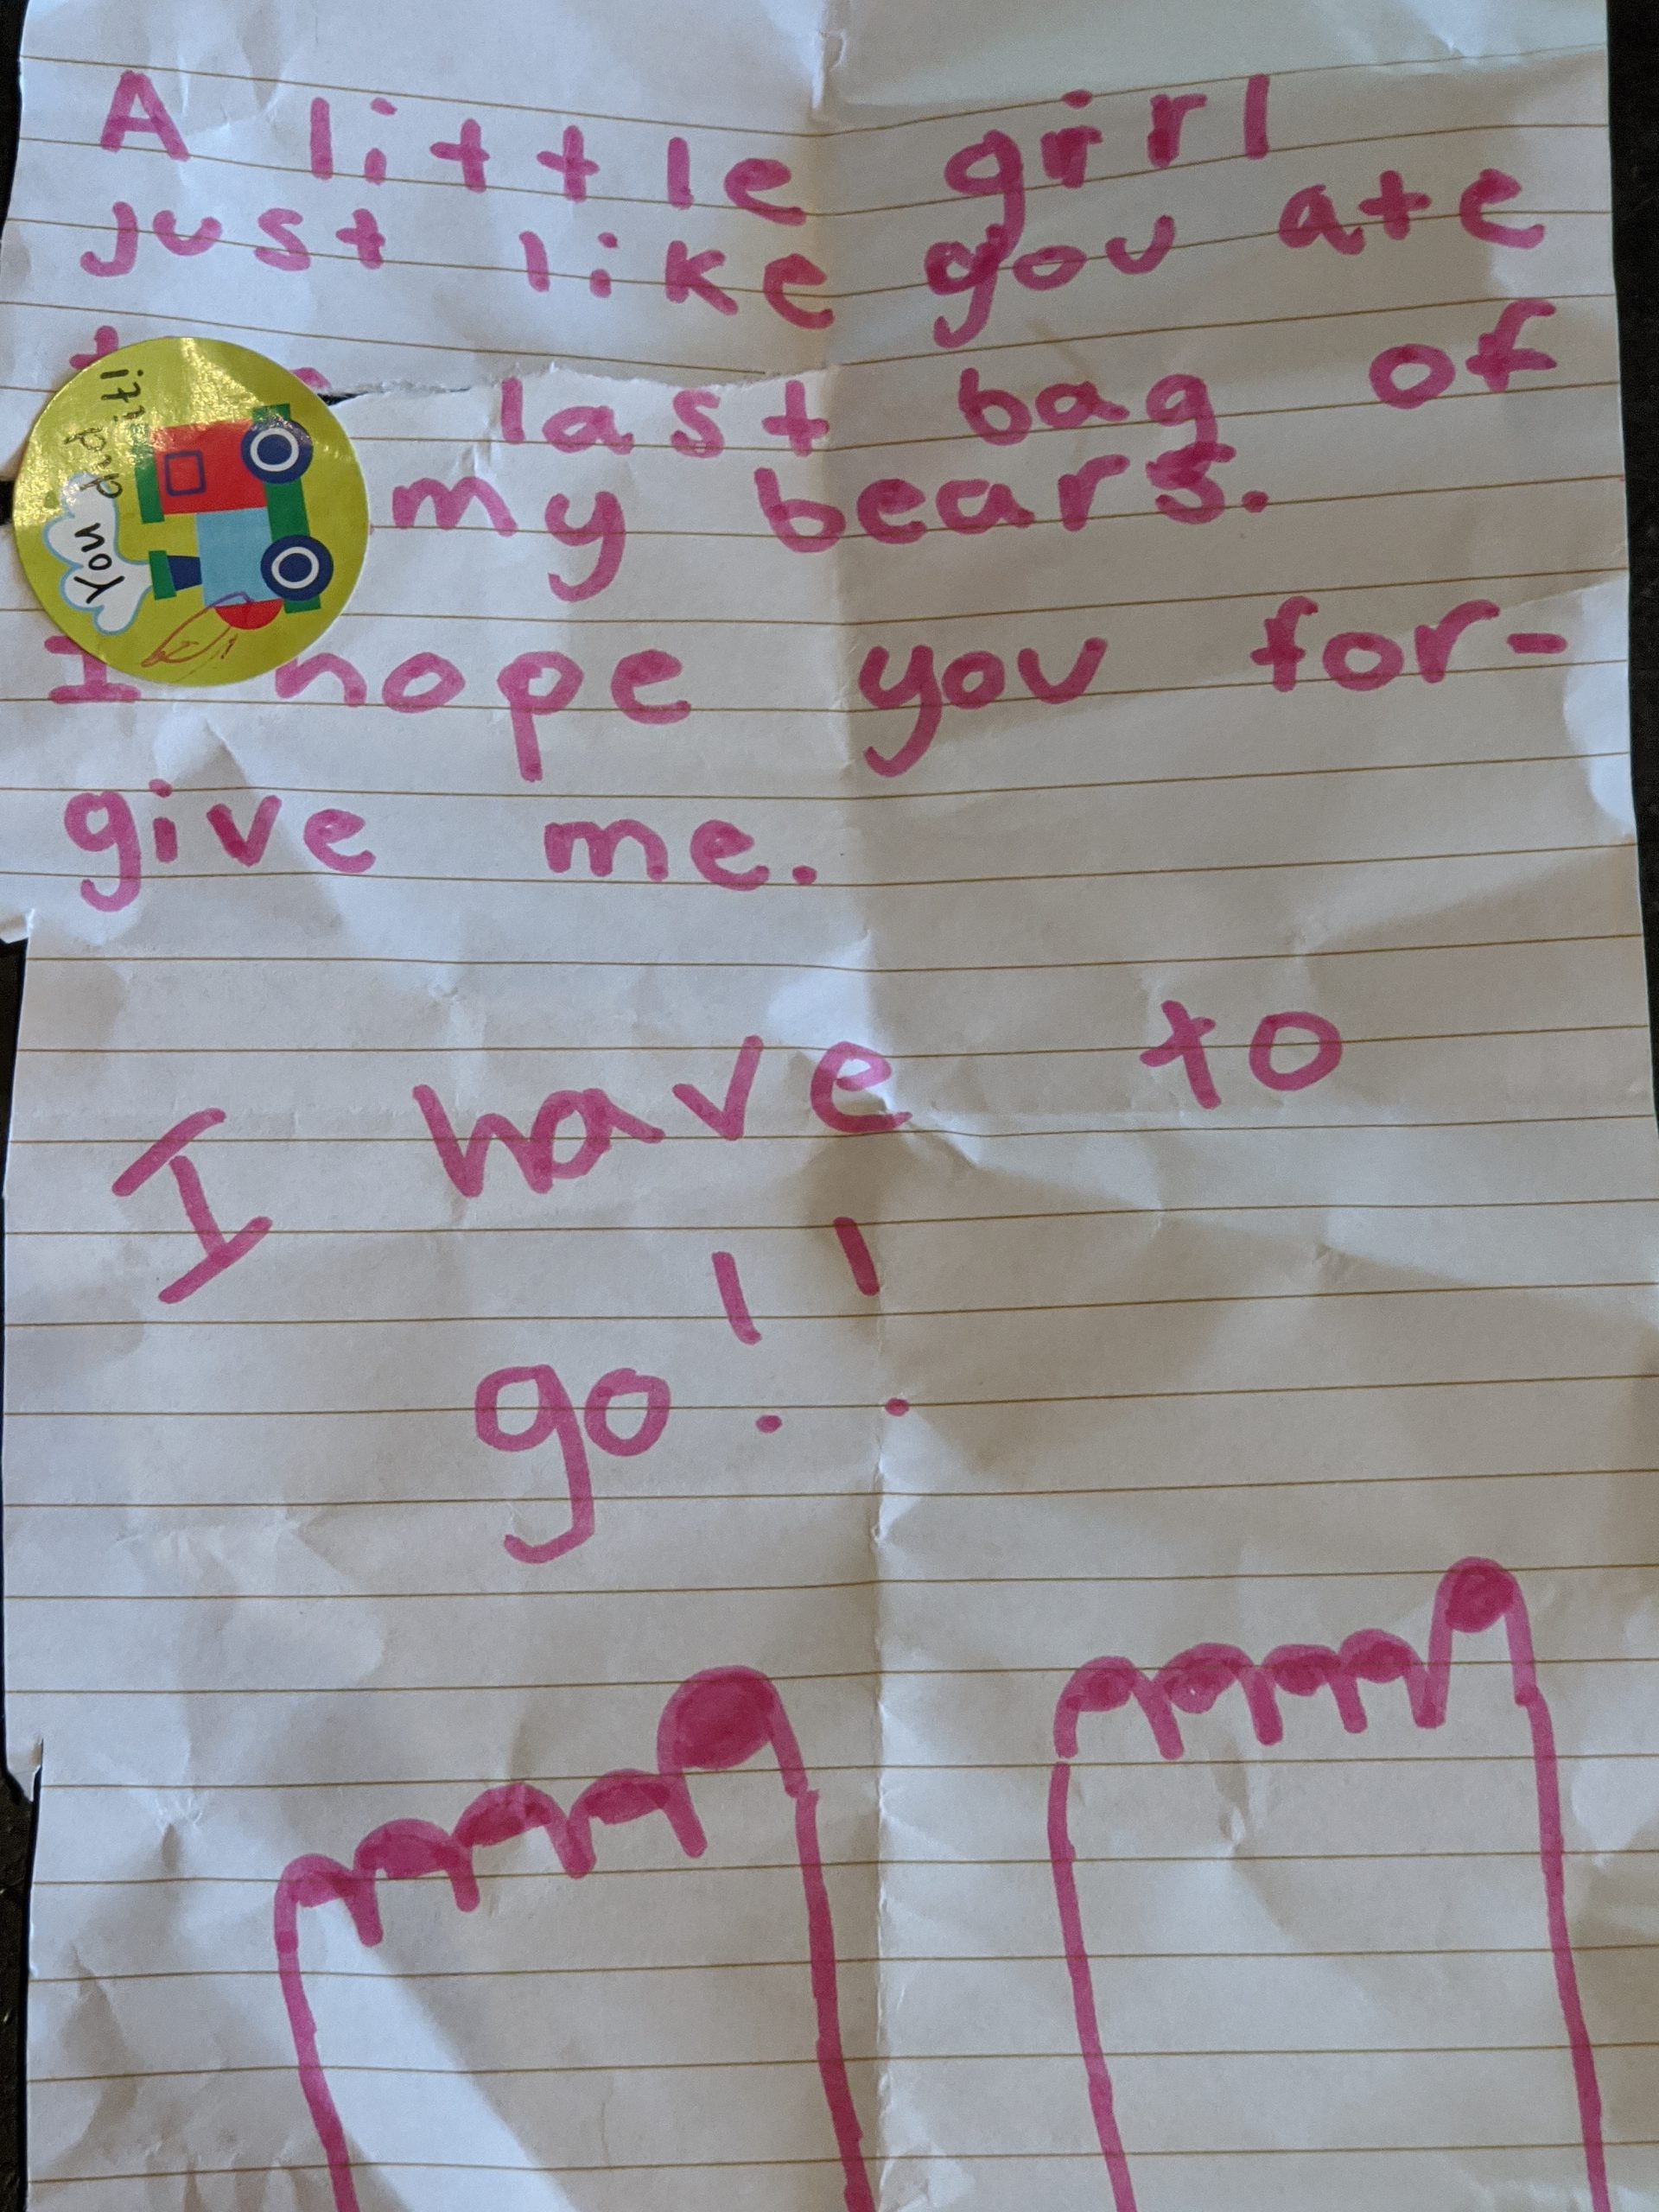 A little girl
just like you ate
last bag of
my bears.
I hope you for-
give me.
I have to
go!!
You did it!